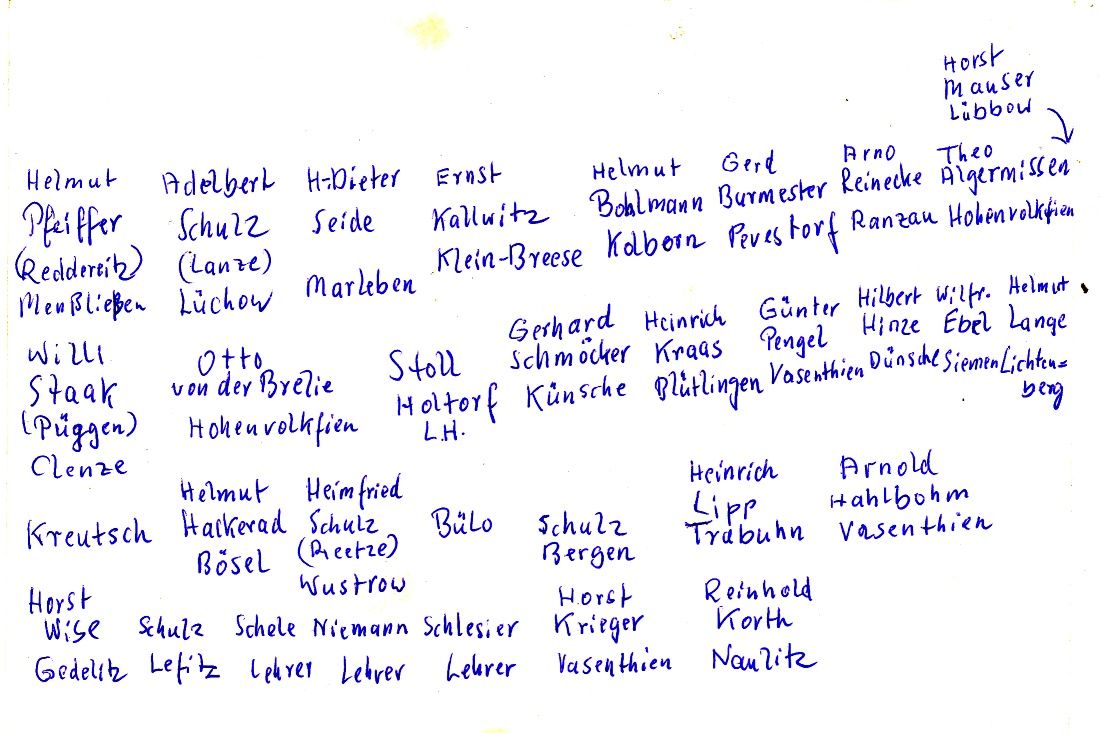 Horst
Mauser
Lübbow
Helmut Adelbert H-Dieter Ernst Helmut Gerd Arno Theo
Pfeiffer Schulz Seide Kallwitz Bohlmann Burmester Reinecke Algermissen
(Reddereitz) (Lanze) Marleben Klein-Breese Kolborn Pevestorf Ranzau Hohenvolkfien
Meußließen Lüchow
Willi Otto Stoll Gerhard Heinrich Günter Hilbert Wilfr. Helmut
Staak von der Brelie Holtorf Schmöcker Kraas Pengel Hinze Ebel Lange
(Püggen) Hohenvolkfien L.H. Künsche Blütlingen Vasenthien Dünsche Siemen Lichten=
Clenze berg
Helmut Heimfried Heinrich Arnold
Kreutsch Hackerad Schulz Bülo Schulz Lipp Hahlbohm
Bösel (Reetze) Bergen Trabuhn Vasenthien
Wustrow
Horst Horst Reinhold
Wise Schulz Schele Niemann Schlesier Krieger Korth
Gedelitz Lefitz Lehrer Lehrer Lehrer Vasenthien Naulitz